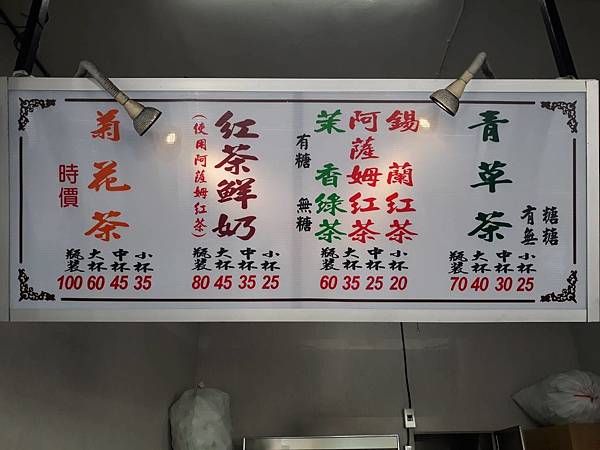 青草茶
有糖
無糖
小杯 中杯 大杯 瓶裝
25 30 40 70
錫蘭紅茶
阿薩姆紅茶
茉香綠茶
有糖
無糖
小杯 中杯 大杯 瓶裝
20 25 35 60
紅茶鮮奶
(使用阿薩姆紅茶)
小杯 中杯 大杯 瓶裝
25 35 45 80
菊花茶
時價
小杯 中杯 大杯 瓶裝
35 45 60 100